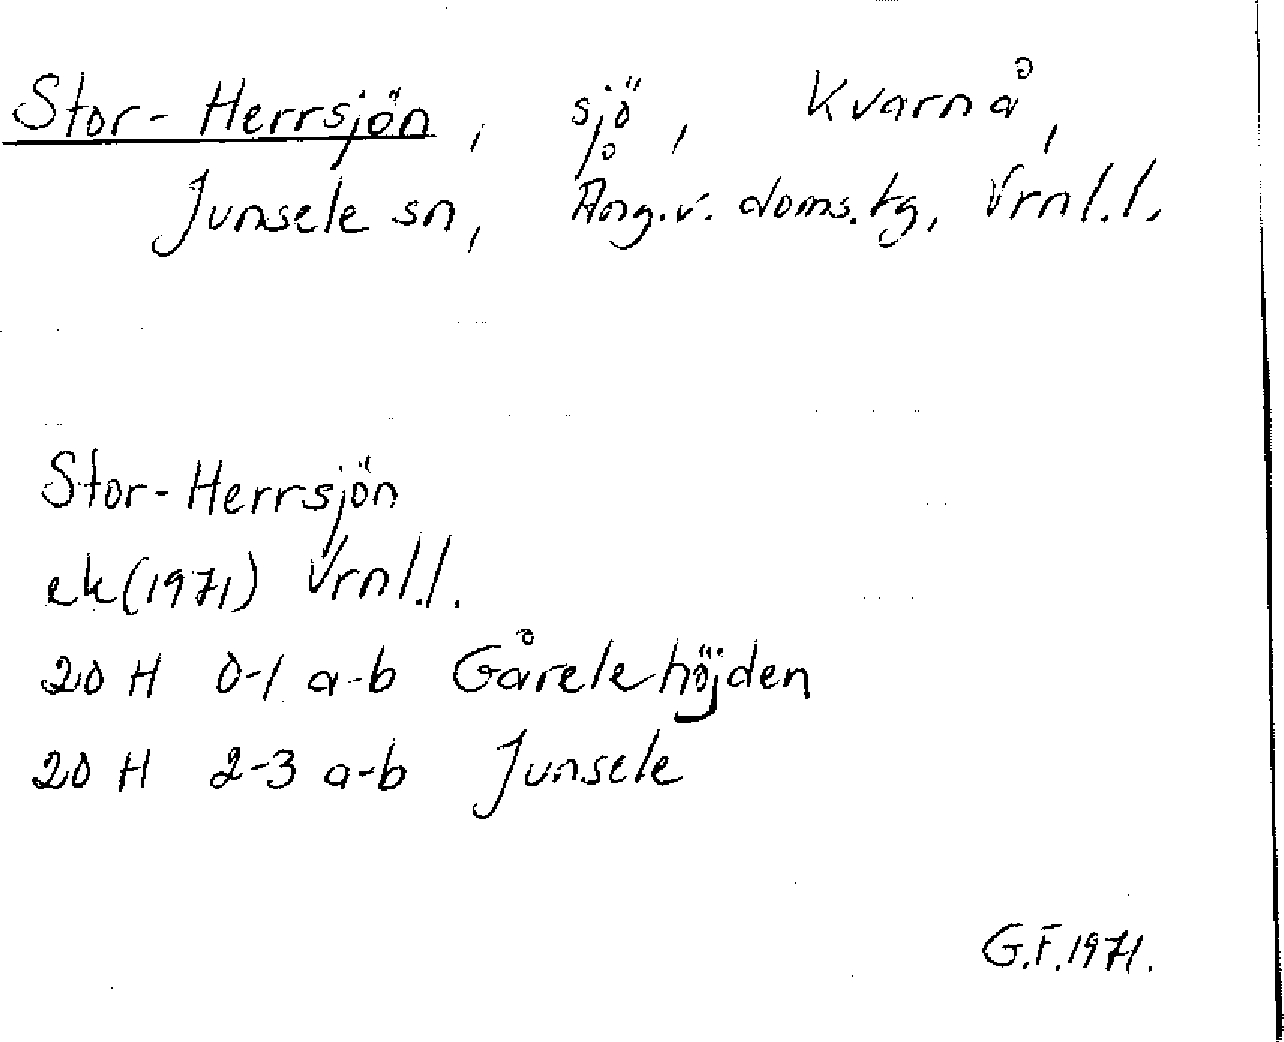 Stor-Herrsjön, sjö, Kvarnå,
Junsele sn, Ång.v. doms.tg, Vrnl.l.
Stor-Herrsjön
ek(1971) Vrnl.l.
20 H 0-1 a-b Gårelehöjden
20 H 2-3 a-b Junsele
G.F.1971.